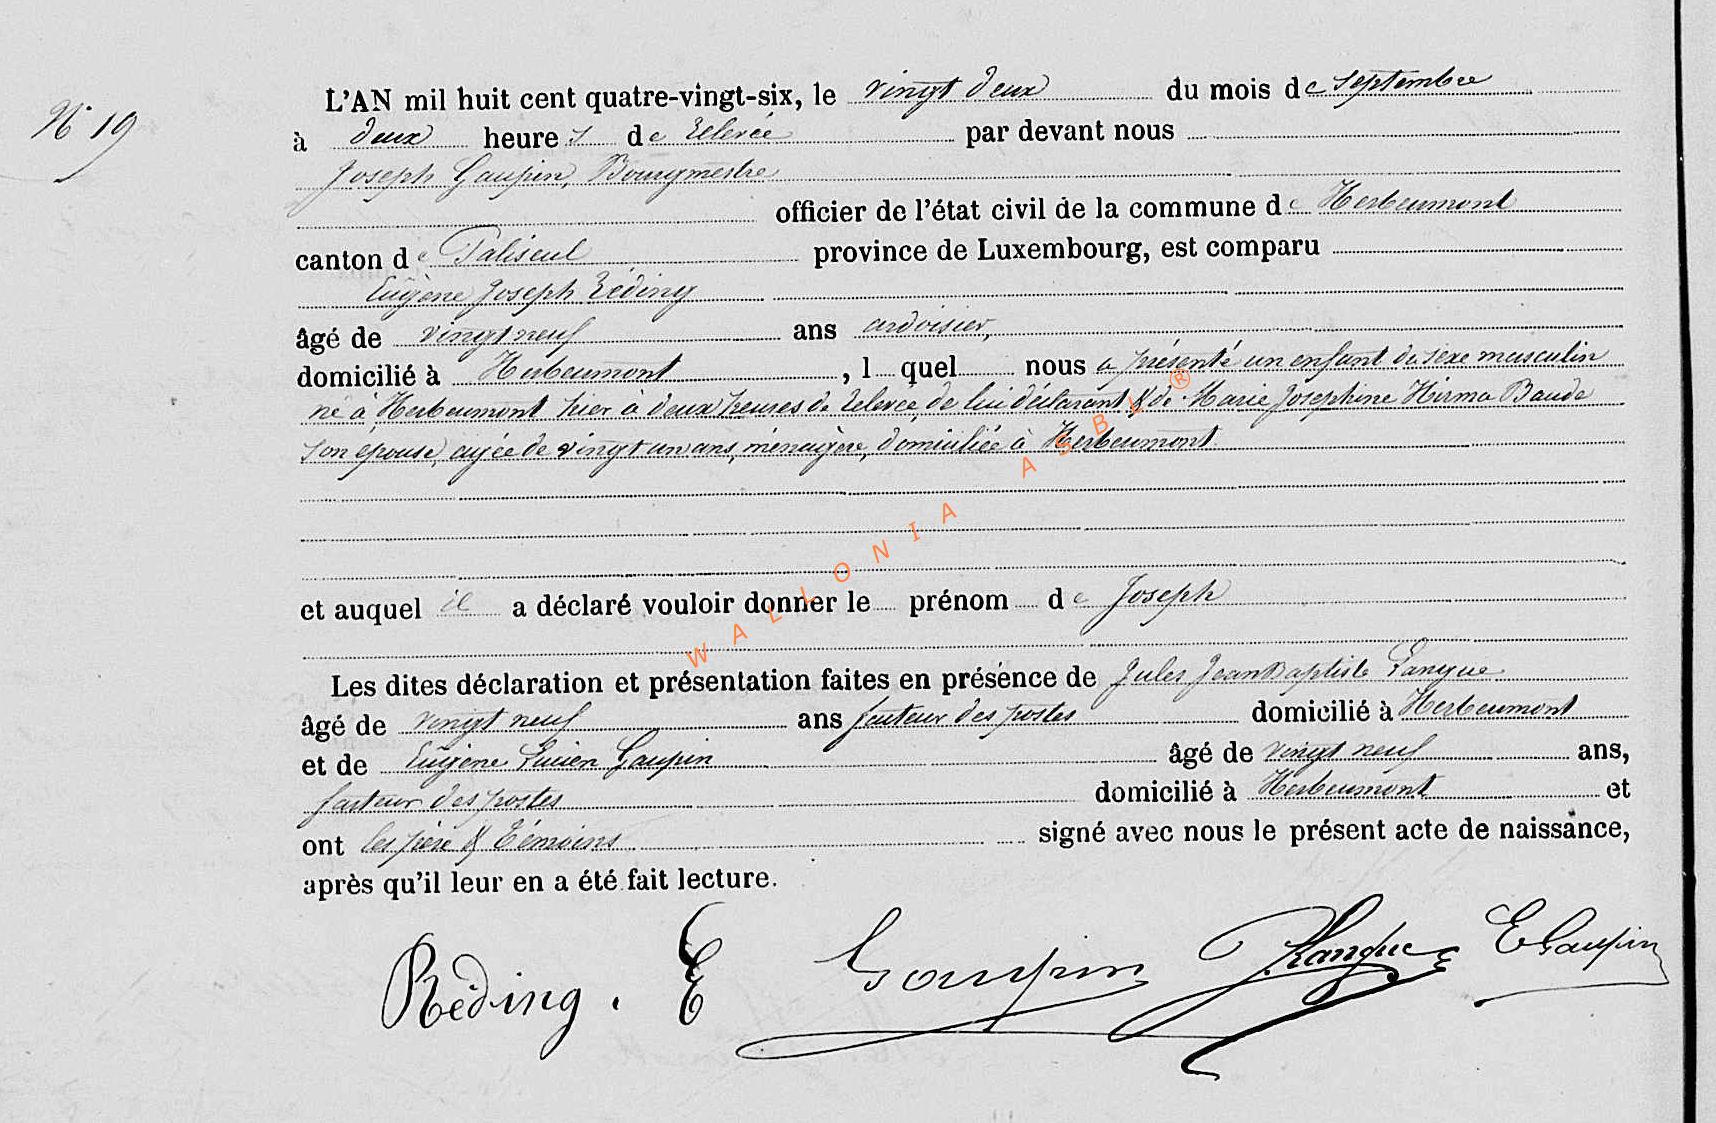 N° 19
L'AN mil huit cent quatre-vingt-six, le vingt deux du mois de septembre
à deux heures de relevée par devant nous
Joseph Gaupin, Bourgmestre
officier de l'état civil de la commune de Herbeumont
canton de Paliseul province de Luxembourg, est comparu
Eugène Joseph Réding
âgé de vingt neuf ans ardoisier,
domicilié à Herbeumont, l quel nous a présenté un enfant du sexe masculin
né à Herbeumont hier à deux heures de relevée, de lui déclarant & de Marie Josephine Hirma Baude
son épouse, agée de vingt un ans, ménagère, domiciliée à Herbeumont
et auquel il a déclaré vouloir donner le prénom de Joseph
Les dites déclaration et présentation faites en présence de Jules Jean Baptiste Langue
âgé de vingt neuf ans facteur des postes domicilié à Herbeumont
et de Eugène Lucien Gaupin âgé de vingt neuf ans,
facteur des postes domicilié à Herbeumont et
ont les père & témoins signé avec nous le présent acte de naissance,
après qu'il leur en a été fait lecture.
Réding. E Gaupin J Langue E Gaupin
WALLONIA ASBL ®